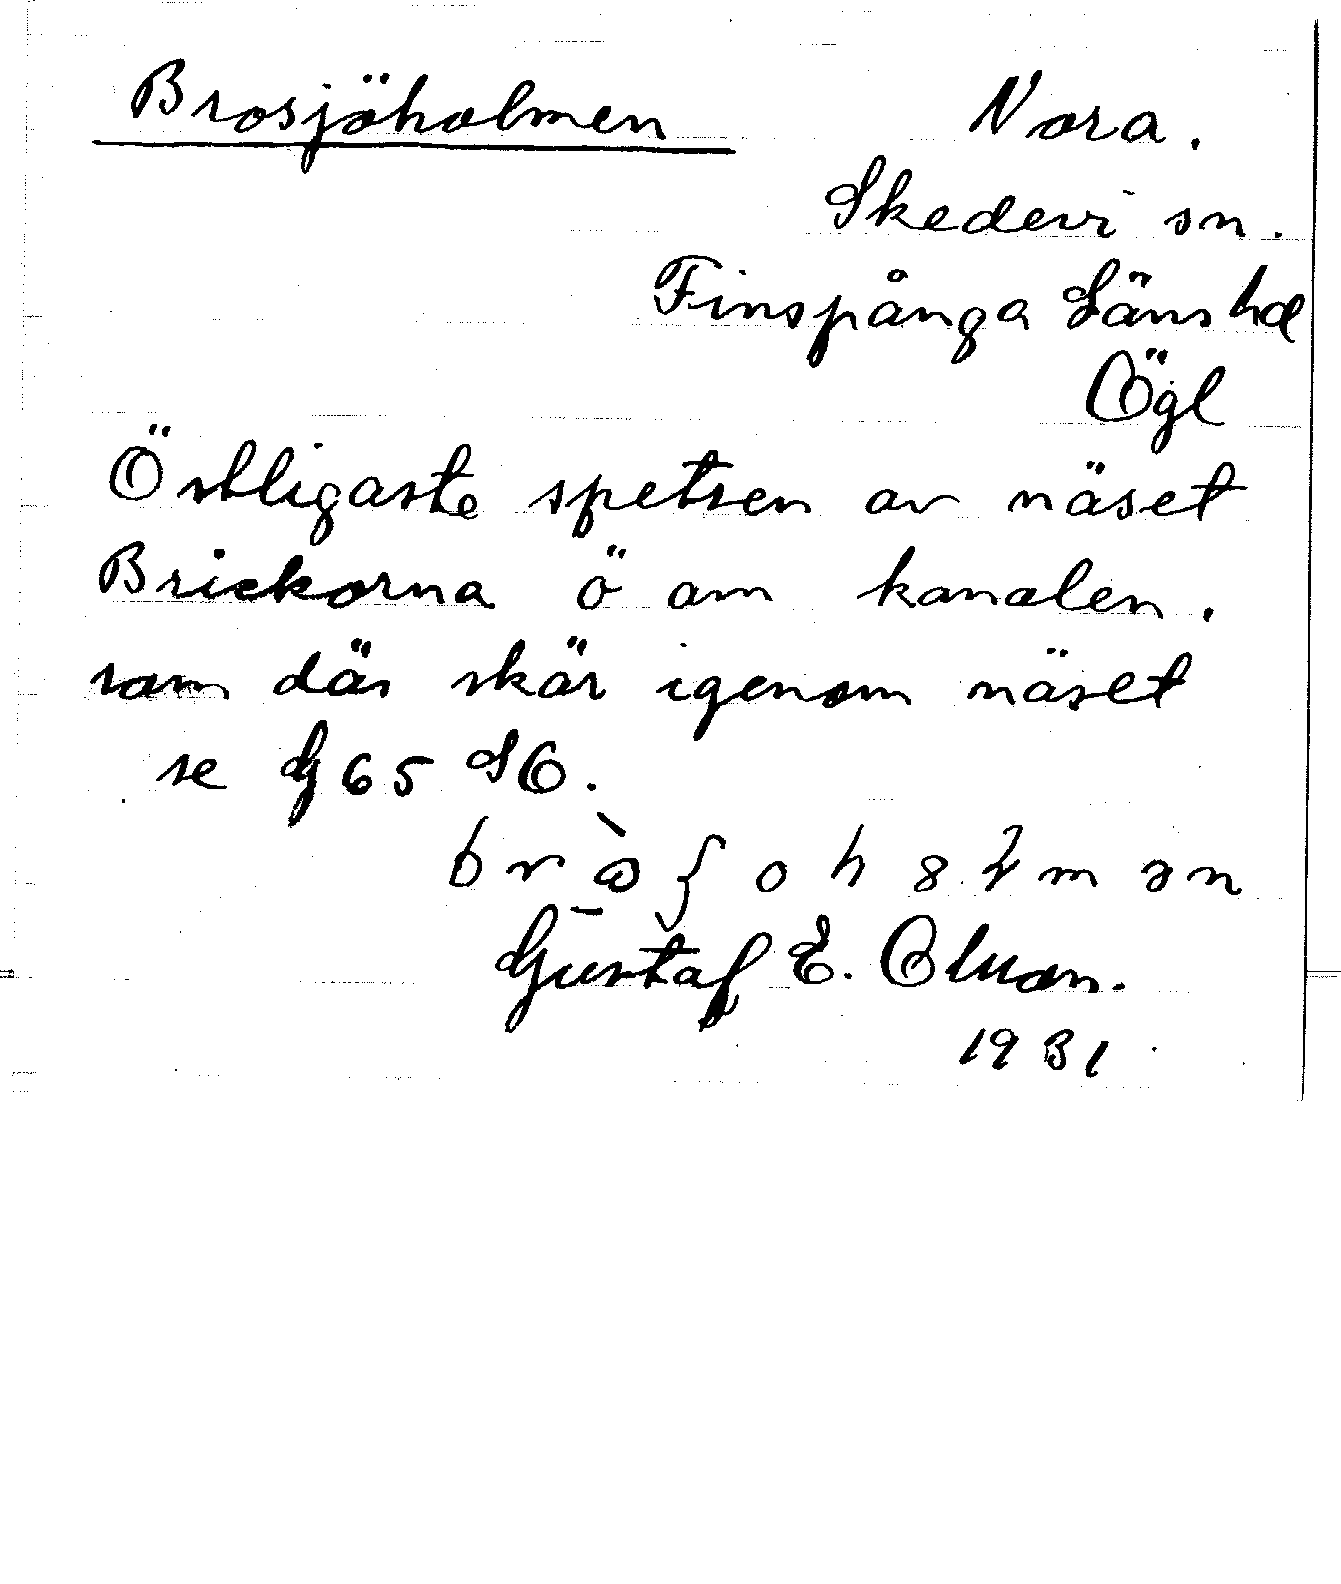 Brosjöholmen Nora.
Skedevi sn.
Finspånga Läns hd
Ögl
Östligaste spetsen av näset
Brickorna ö om kanalen.
som där skär igenom näset
se G 65 SO.
Gustaf E.
1931